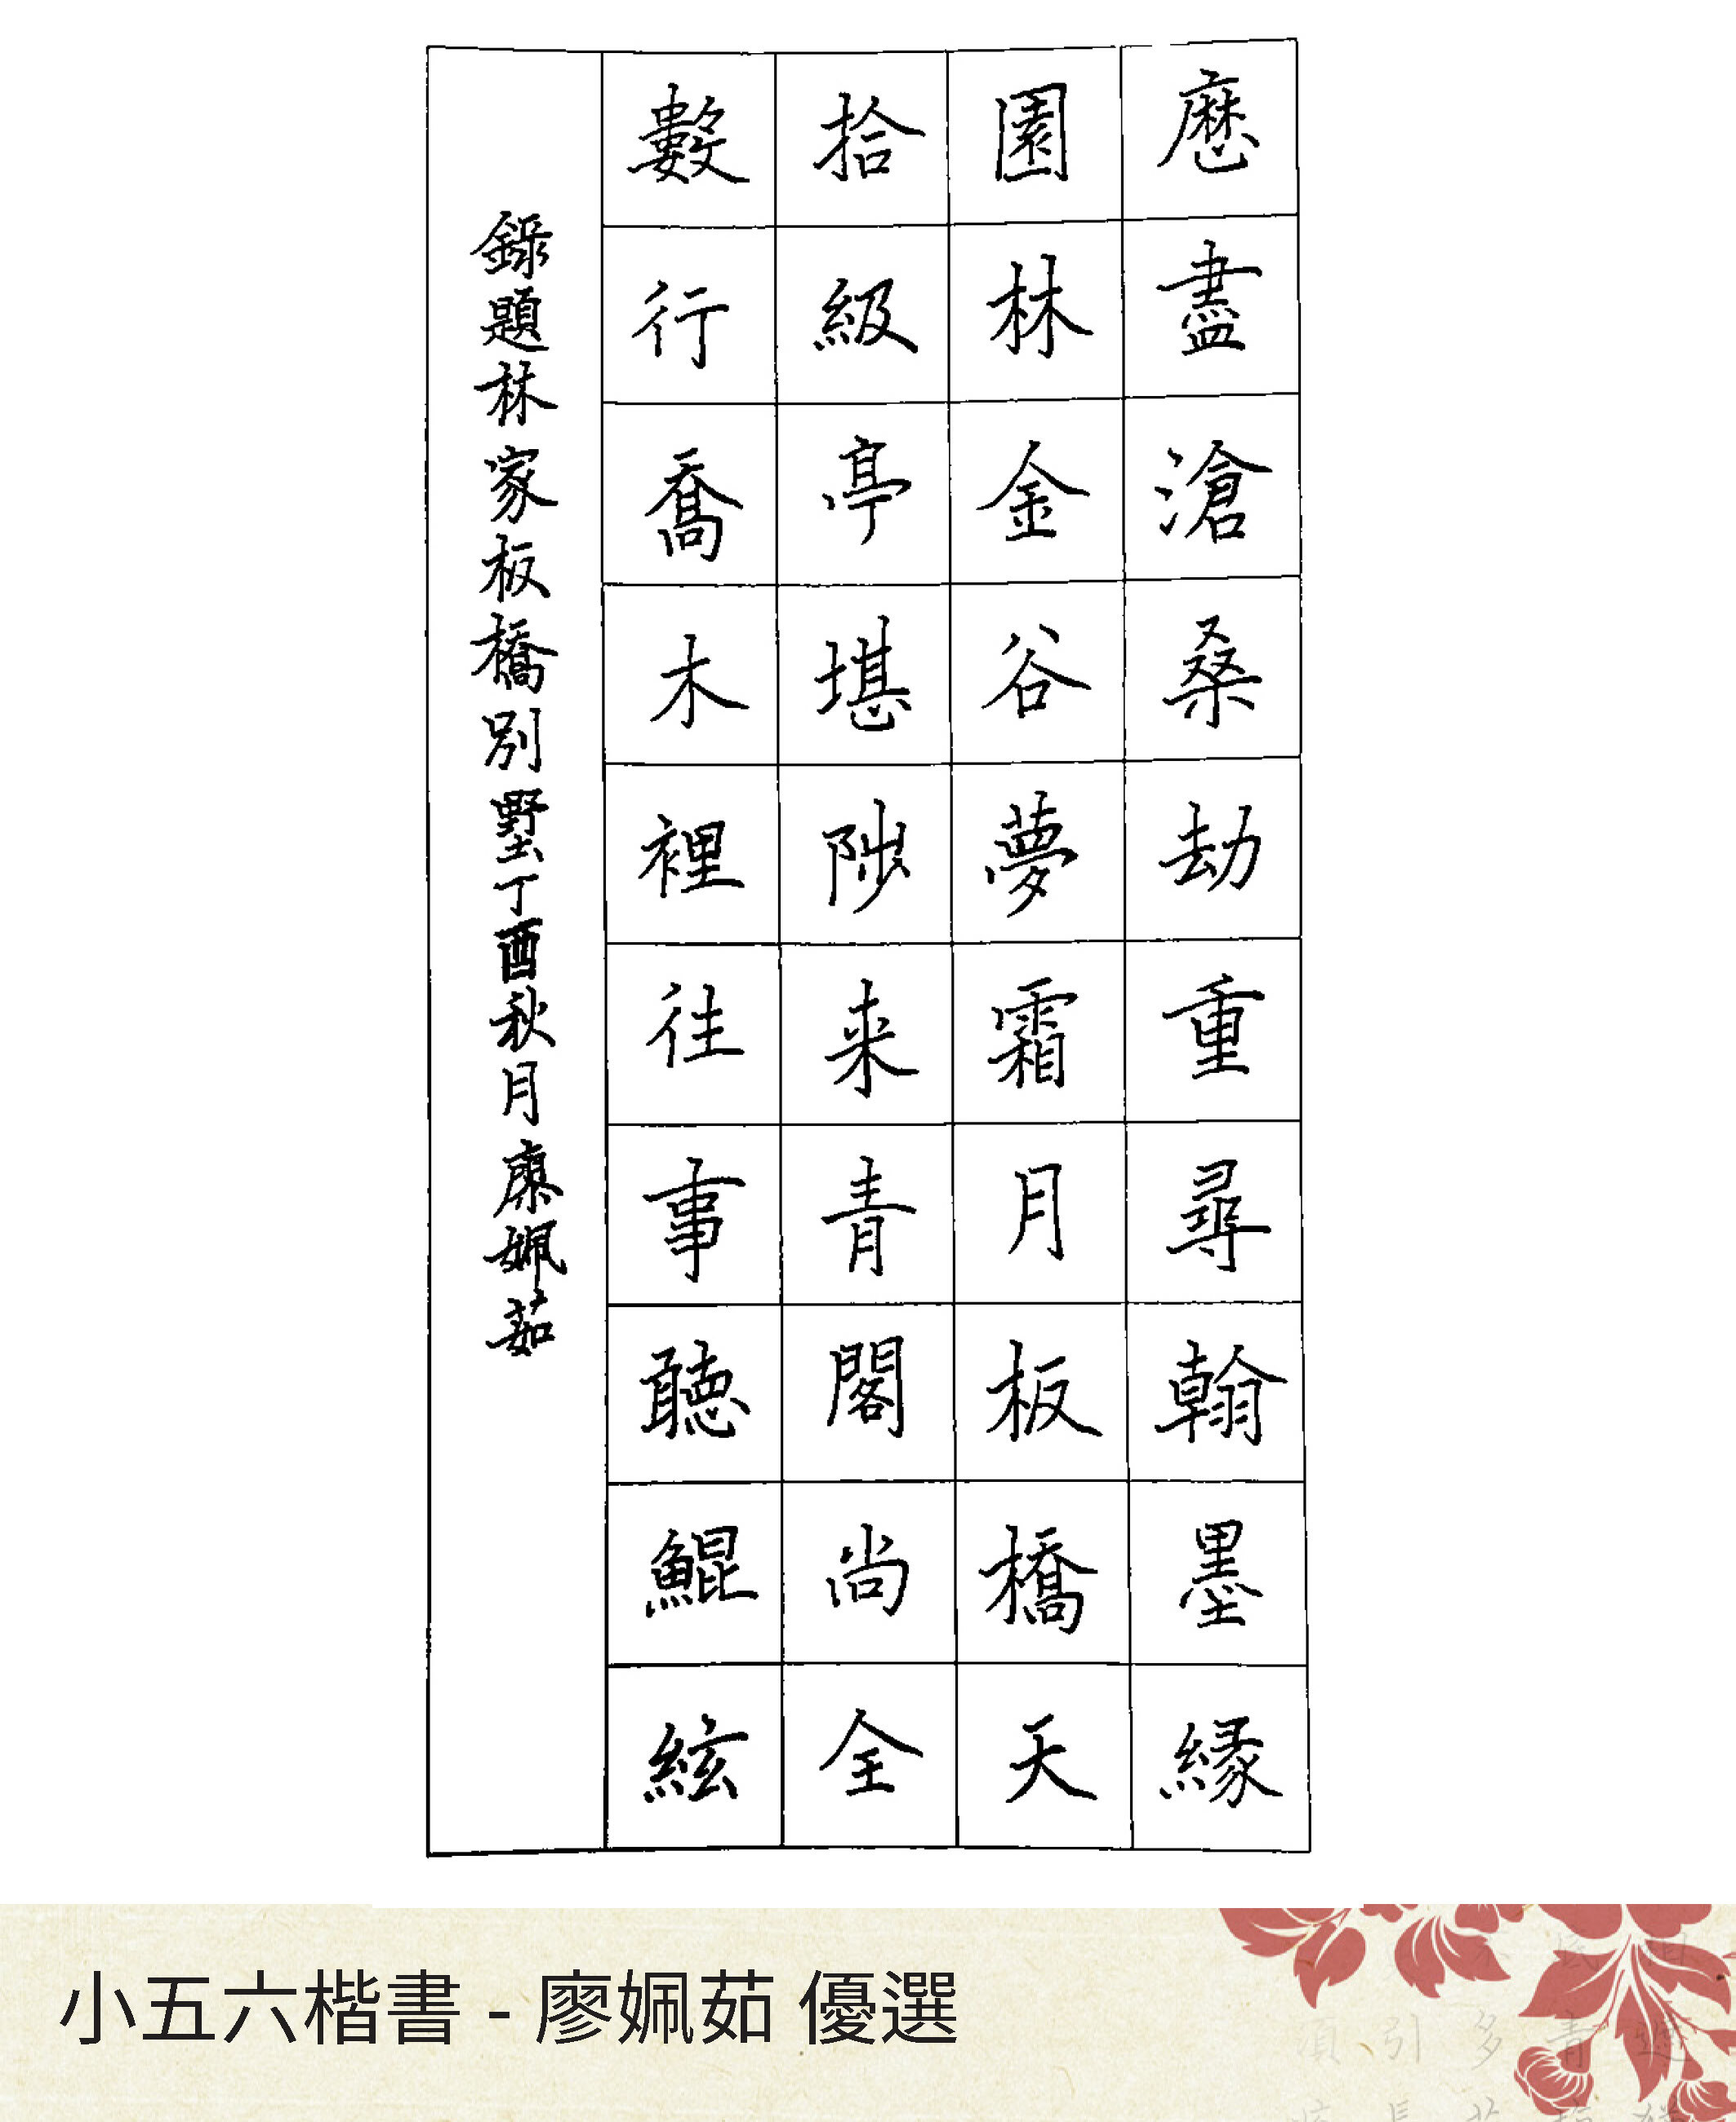 歷盡滄桑劫重尋翰墨緣
園林金谷夢霜月板橋天
拾級亭堪陟来青閣尚全
數行喬木裡往事聽鯤絃
錄題林家板橋別墅丁酉秋月廖姵茹
小五六楷書 - 廖姵茹 優選